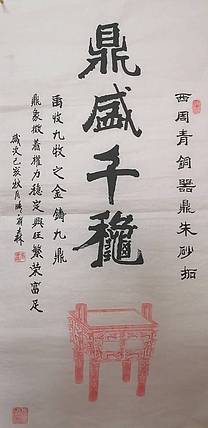 西周青銅器鼎朱砂拓
鼎盛千穐
禹收九牧之金鑄九鼎
鼎象徵着權力穩定興旺繁荣富足
歲次己亥秋月